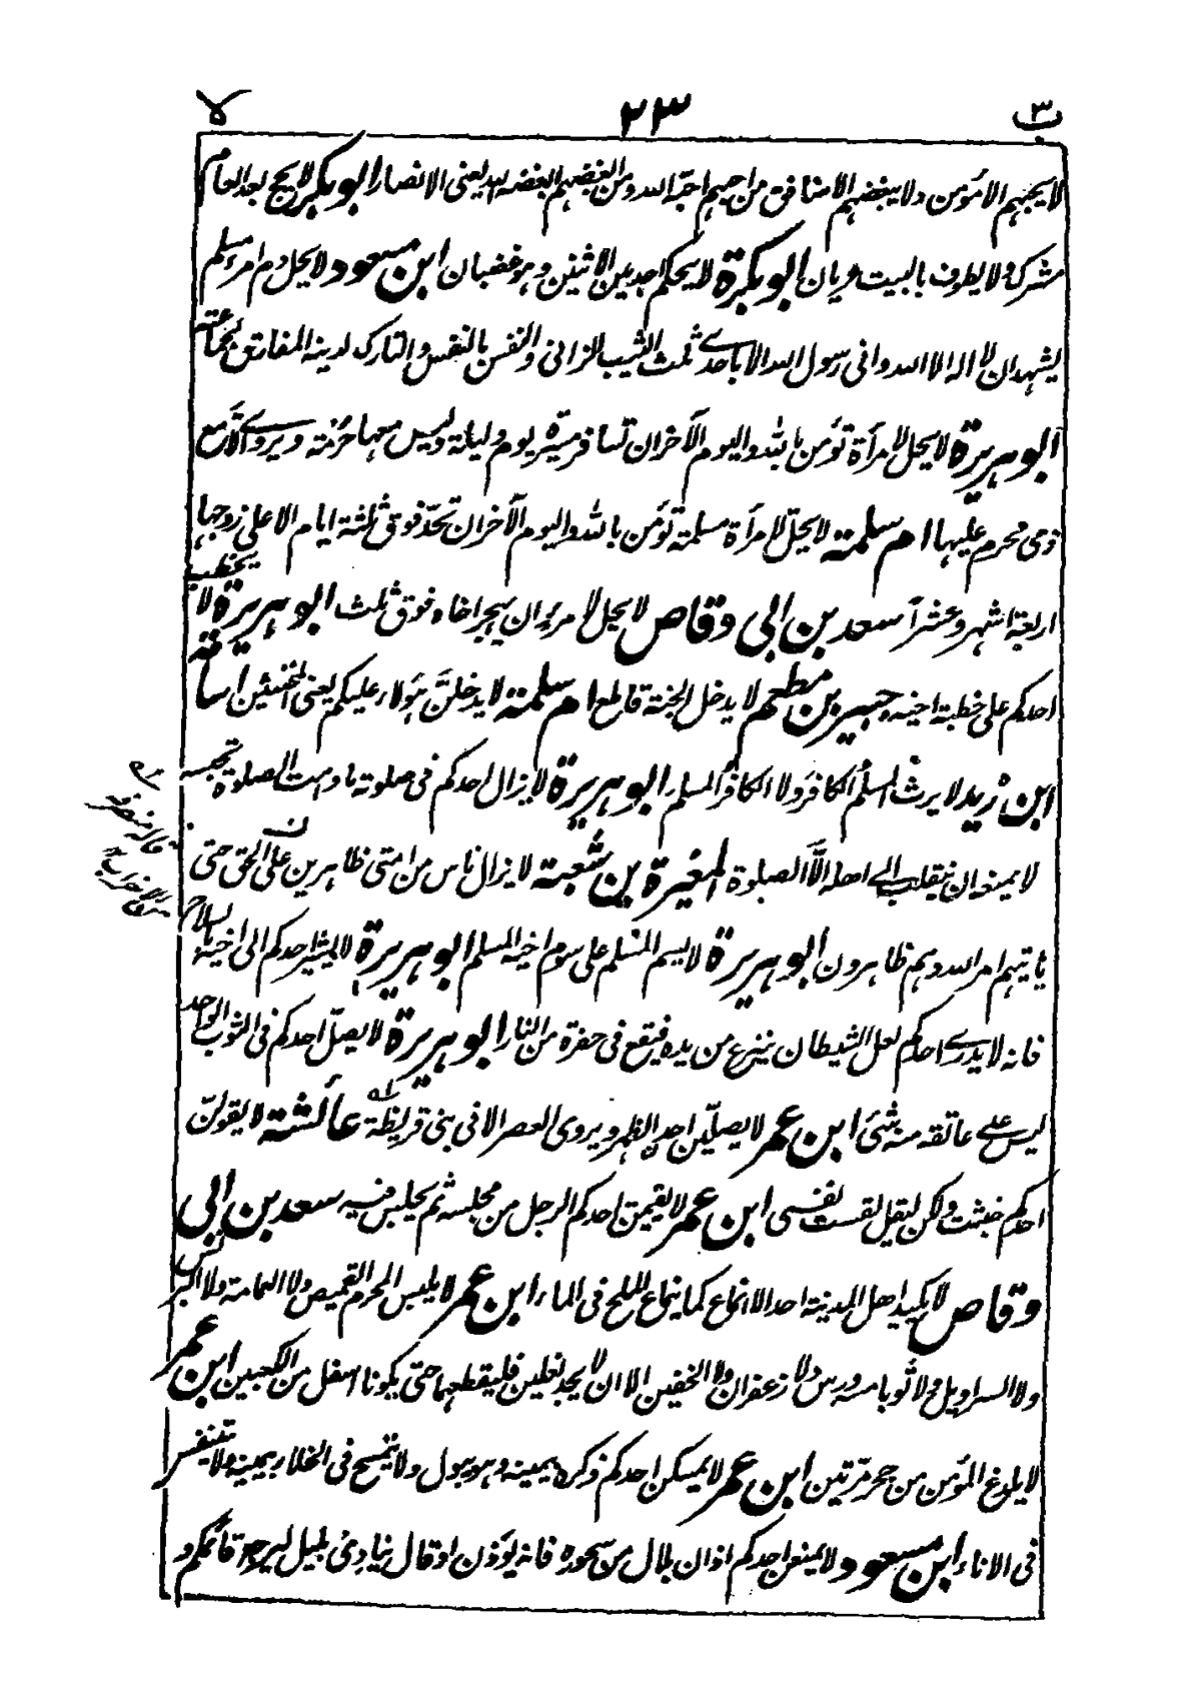 ب٣ ٢٣ لا
لا يحبهم الا مؤمن ولا يبغضهم الا منافق من احبهم احبّه الله ومن ابغضهم ابغضه الله يعنى الانصار ابوبكر لا يحج بعد العام
مشرك ولا يطوف بالبيت عريان ابوبكرة لا يحكم احد بين الاثنين وهو غضبان ابن مسعود لا يحل دم امرء مسلم
يشهد ان لا اله الا الله وانى رسول الله الا باحدے ثلث الثيب الزانى والنفس بالنفس والتارك لدينه المفارق لجماعته
ابو هريرة لا يحل لامرأة تؤمن بالله واليوم الآخر ان تسافر مسيرة يوم وليلة وليس معها حرمة ويروے الا مع
ذى محرم عليها ام سلمة لا يحلّ لامرأة مسلمة تؤمن بالله واليوم الآخر ان تحدّ فوق ثلثة ايام الا على زوجها
اربعة اشهر وعشرا سعد بن ابى وقاص لا يحل لامرء ان يهجر اخاه فوق ثلث ابو هريرة لا يخطب
احدكم على خطبة اخيه جبير بن مطعم لا يدخل الجنة قاطع ام سلمة لا يدخلنّ هؤلاء عليكم يعنى المخنثين اسامة
ابن زيد لا يرث المسلم الكافر ولا الكافر المسلم ابو هريرة لا يزال احدكم فى صلوة ما دامت الصلوة تحبسه
لا يمنعه ان ينقلب الے اهله الّا الصلوة المغيرة بن شعبة لا يزال ناس من امتى ظاهرين على الحق حتى
ياتيهم امر الله وهم ظاهرون ابو هريرة لا يسم المسلم على سوم اخيه المسلم ابو هريرة لا يشير احدكم الى اخيه بالسلاح
فانه لا يدرے احدكم لعل الشيطان ينزع من يده فيقع فى حفرة من النار ابو هريرة لا يصلّ احدكم فى الثوب الواحد
ليس علے عاتقه منه شئ ابن عمر لا يصلّين احد الظهر ويروى العصر الا فى بنى قريظة عائشة لا يقولنّ
احدكم خبثت ولكن ليقل لقست نفسى ابن عمر لا يقيمن احدكم الرجل من مجلسه ثم يجلس فيه سعد بن ابى
وقاص لا يكيد اهل المدينة احد الا انماع كما ينماع الملح فى الماء ابن عمر لا يلبس المحرم القميص ولا العمامة ولا البرنس
ولا السراويل ولا ثوبا مسه ورس ولا زعفران ولا الخفين الا ان لا يجد نعلين فليقطعهما حتى يكونا اسفل من الكعبين ابن عمر
لا يلدغ المؤمن من جحر مرتين ابن عمر لا يمسكن احدكم ذكره بيمينه وهو يبول ولا يتمسح فى الخلاء بيمينه ولا يتنفس
فى الاناء ابن مسعود لا يمنعن احدكم اذان بلال من سحوره فانه يؤذن او قال ينادى بليل ليرجع قائمكم و